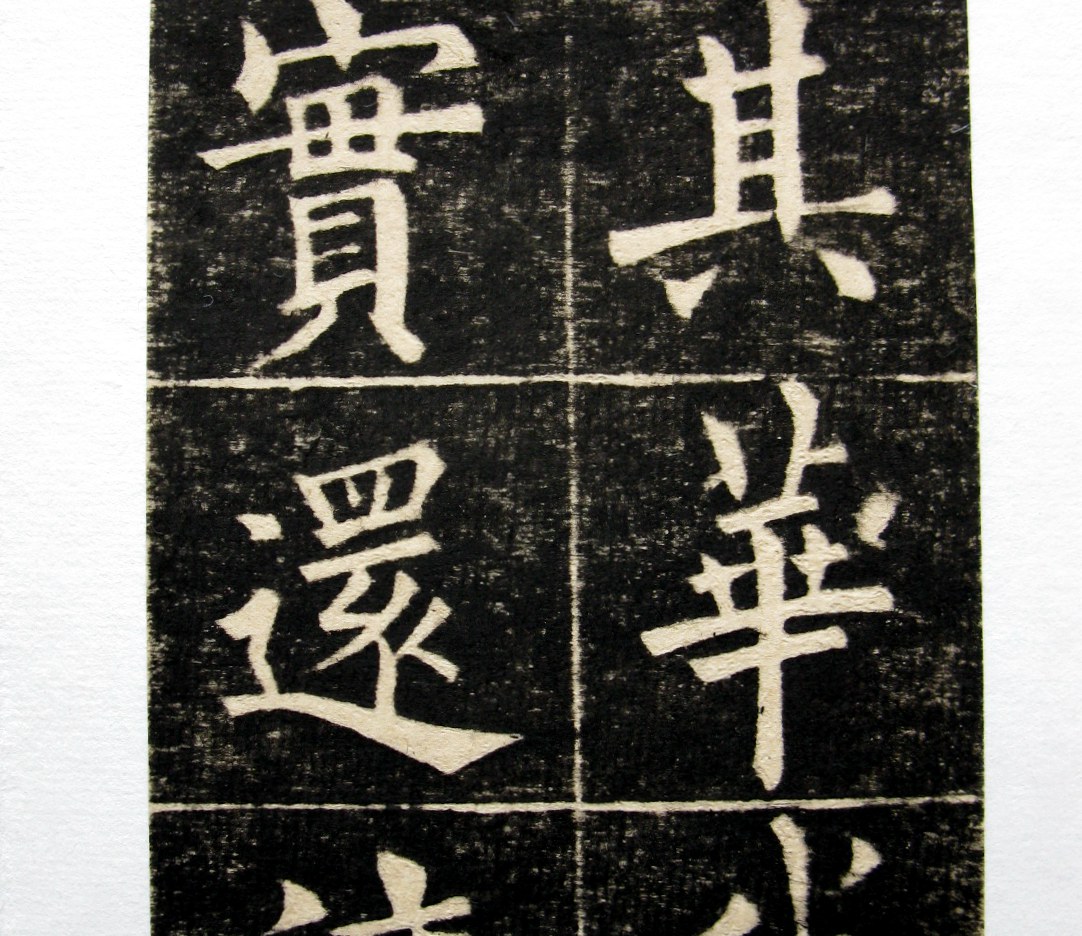 其華
實還